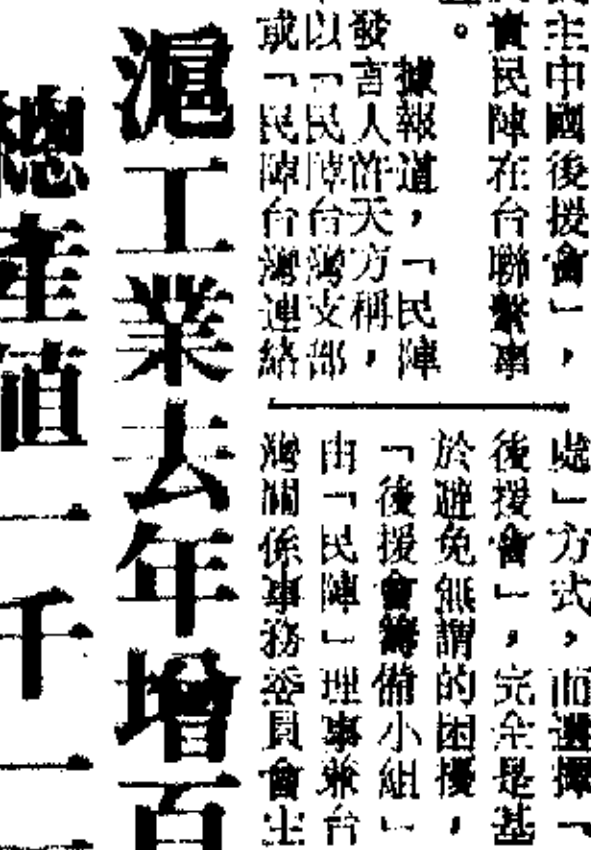 主中國後援會」，
責民陣在台聯繫事
。
據報道，「民陣
發言人許天方稱，
以「民陣台灣支部
或「民陣台灣連絡
處」方式，而選擇「
後援會」，完全是基
於避免無謂的困擾，
「後援會籌備小組」
由「民陣」理事兼台
灣關係事務委員會主
滬工業去年增百
總產值一千一